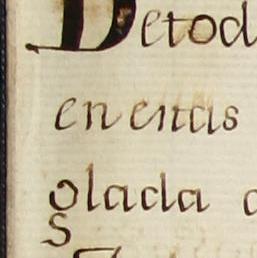 Detod
en entis
olada
S